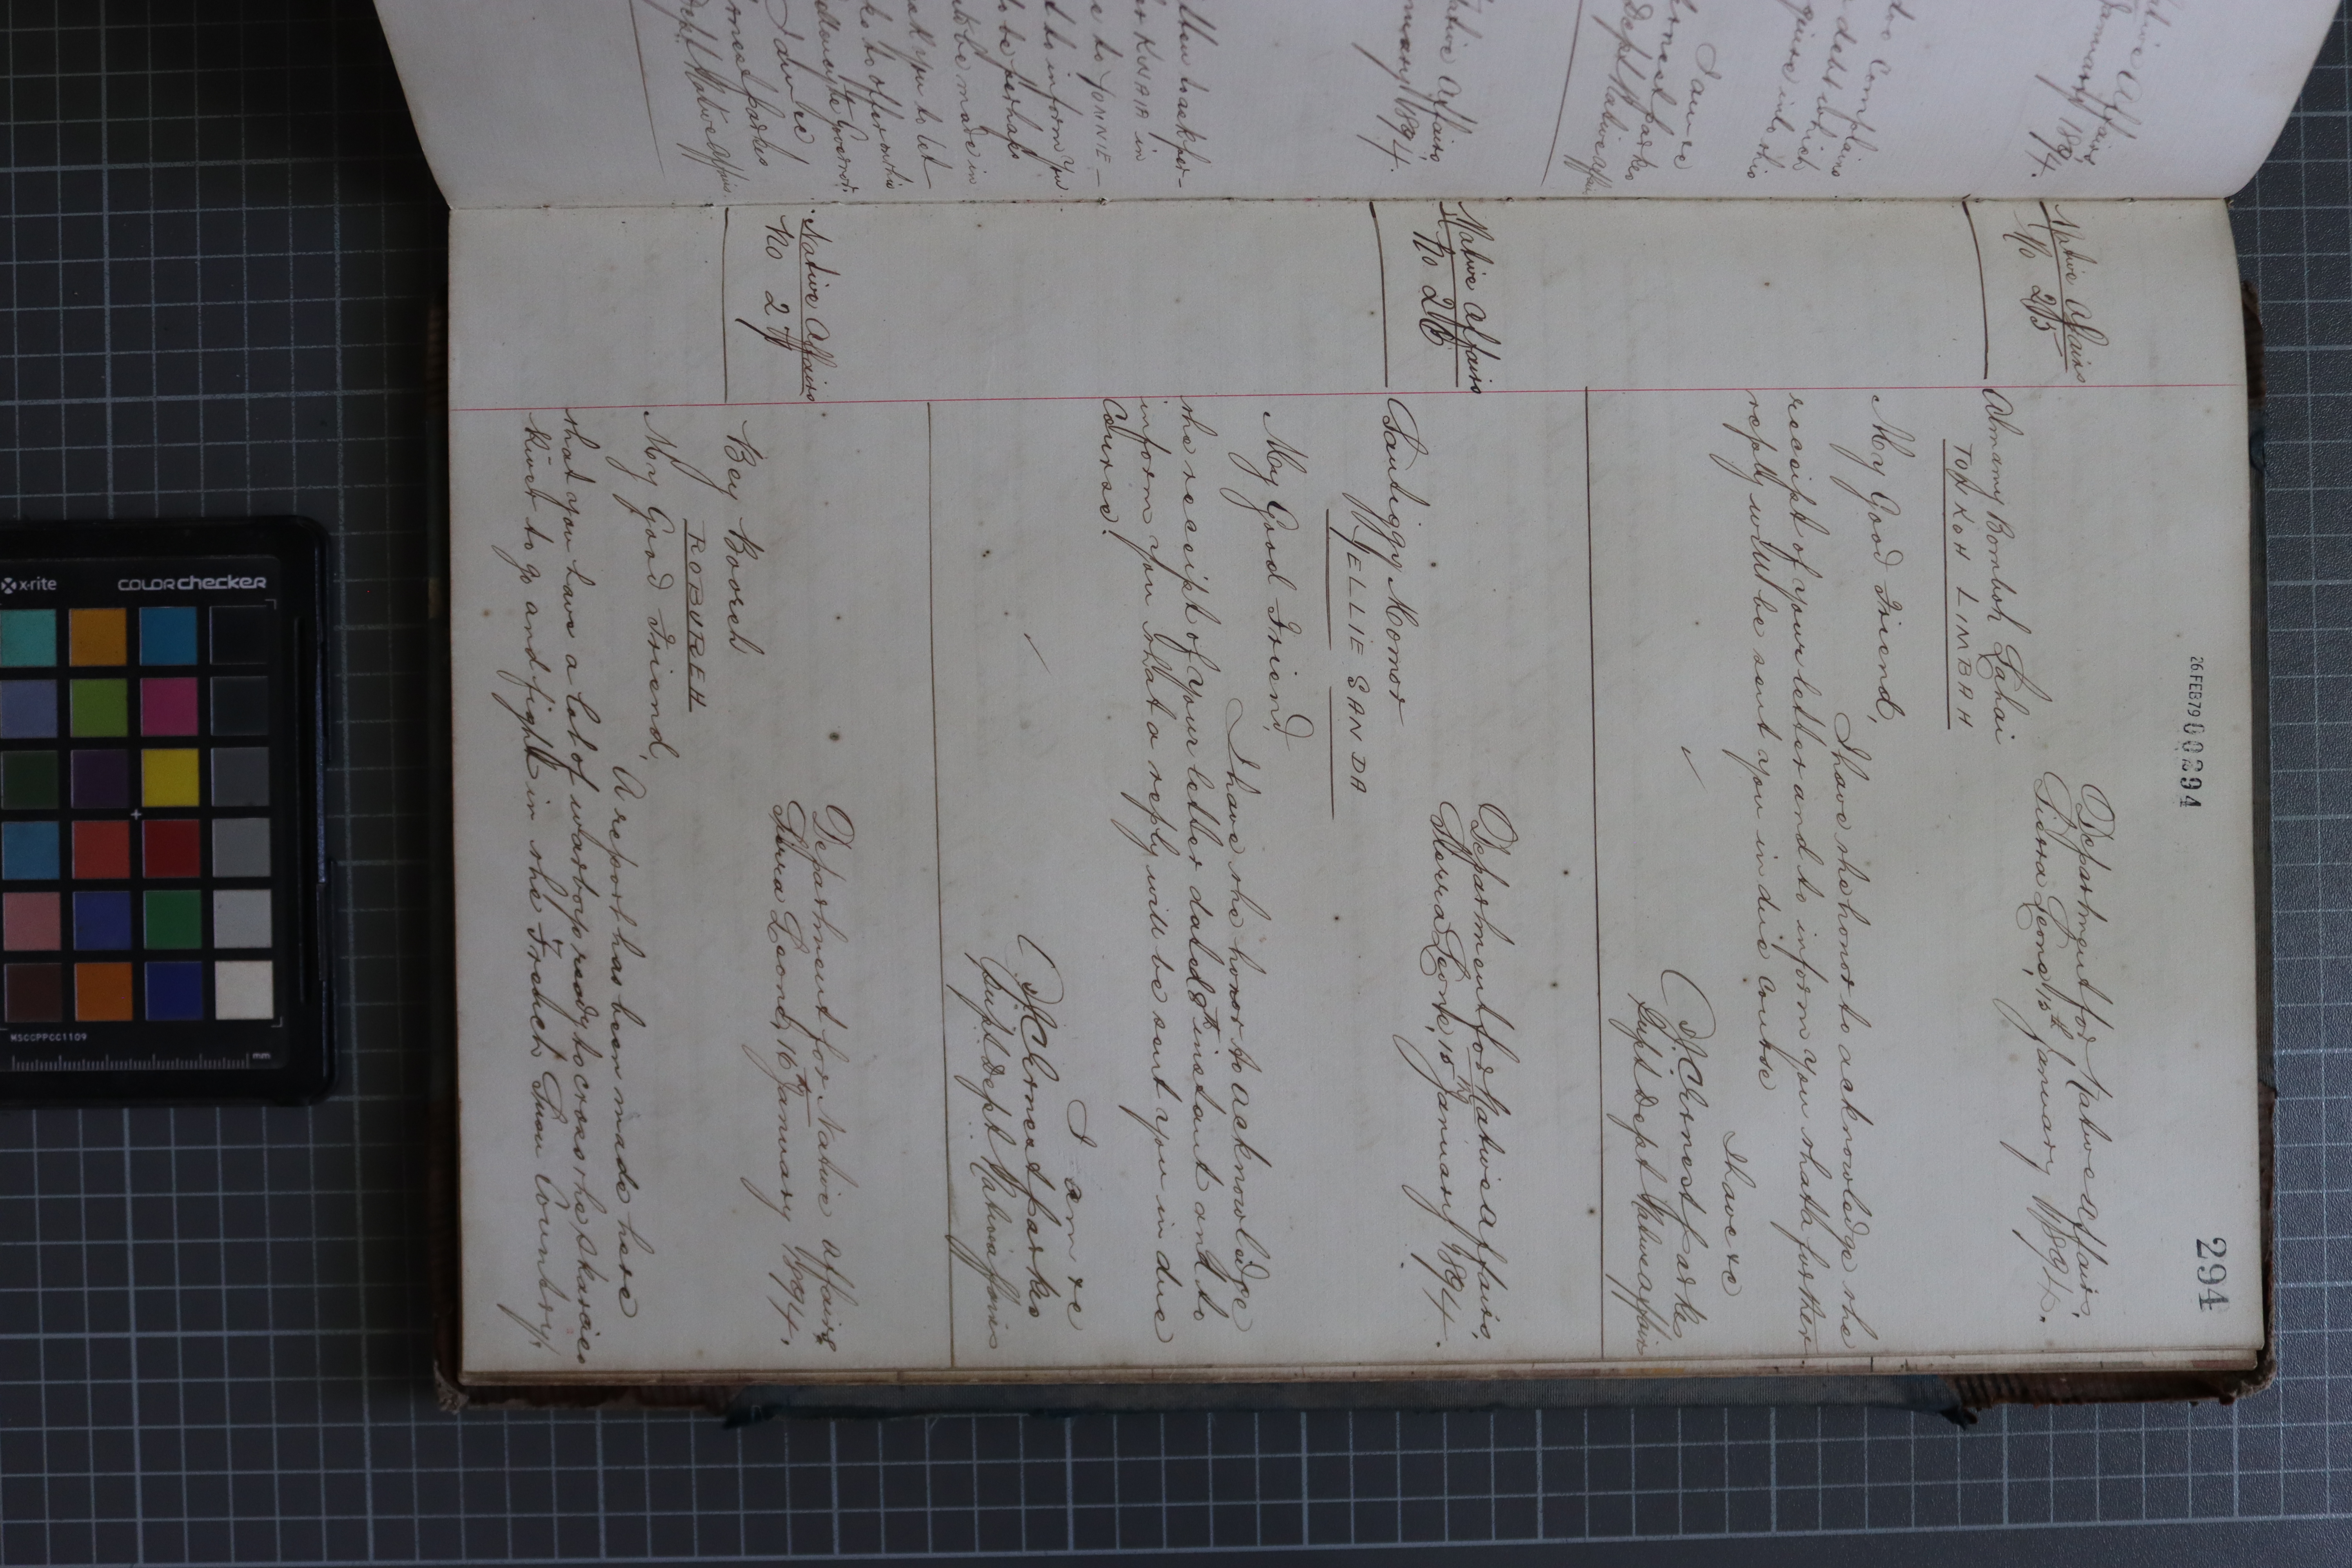 294
26FEB79 00294
Department for Native Affairs,
Sierra Leone, 15th January 1894.
Native Affairs
No 25
Almamy Bomboh Lahai
TOHKOH LIMBAH
My Good Friend,
I have the honor to acknowledge the
receipt of your letter and to inform you that a further
reply will be sent you in due course
I have &c
J C Ernest Parkes
Supt Dept Native Affairs
Department for Native Affairs,
Sierra Leone, 15th January 1894.
Native Affairs
No 26
Santiggy Komor
MELLIE SANDA
My Good Friend,
I have the honor to acknowledge
the receipt of your letter dated 8th instant and to
inform you that a reply will be sent you in due
course.
I am &c
J C Ernest Parkes
Supt Dept Native Affairs
Department for Native Affairs
Sierra Leone, 16th January 1894.
Native Affairs
No 27
Bey Booreh
ROBUREH
My Good Friend,
A report has been made here
that you have a lot of warboys ready to cross the Skarcies
River to go and fight in the French Susu Country,
Native Affairs
January 1894.
Complains
debt which
enquire into this
I am &c
Ernest Parkes
Dept Native Affairs
Native Affairs,
January 1894.
in
to inform you
to be perhaps
be made in
ask you to let
to offer
the Governor.
I am &c
Ernest Parkes
Dept Native Affairs
x-rite
colorchecker
MSCCPPCC1109
mm